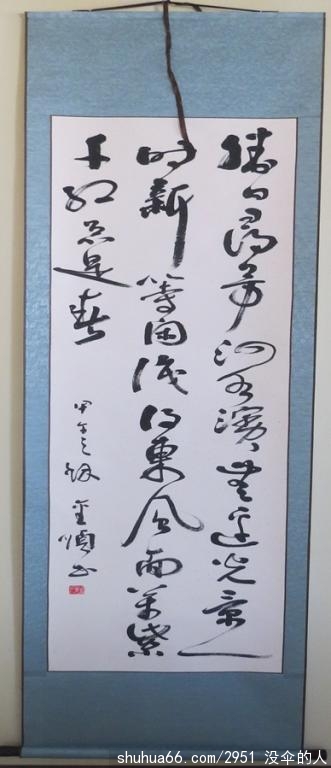 勝日尋芳泗水濱無邊光景一
時新等閑識得東風面萬紫
千紅總是春
甲午之秋 金順书
shuhua66.com/2951 没伞的人